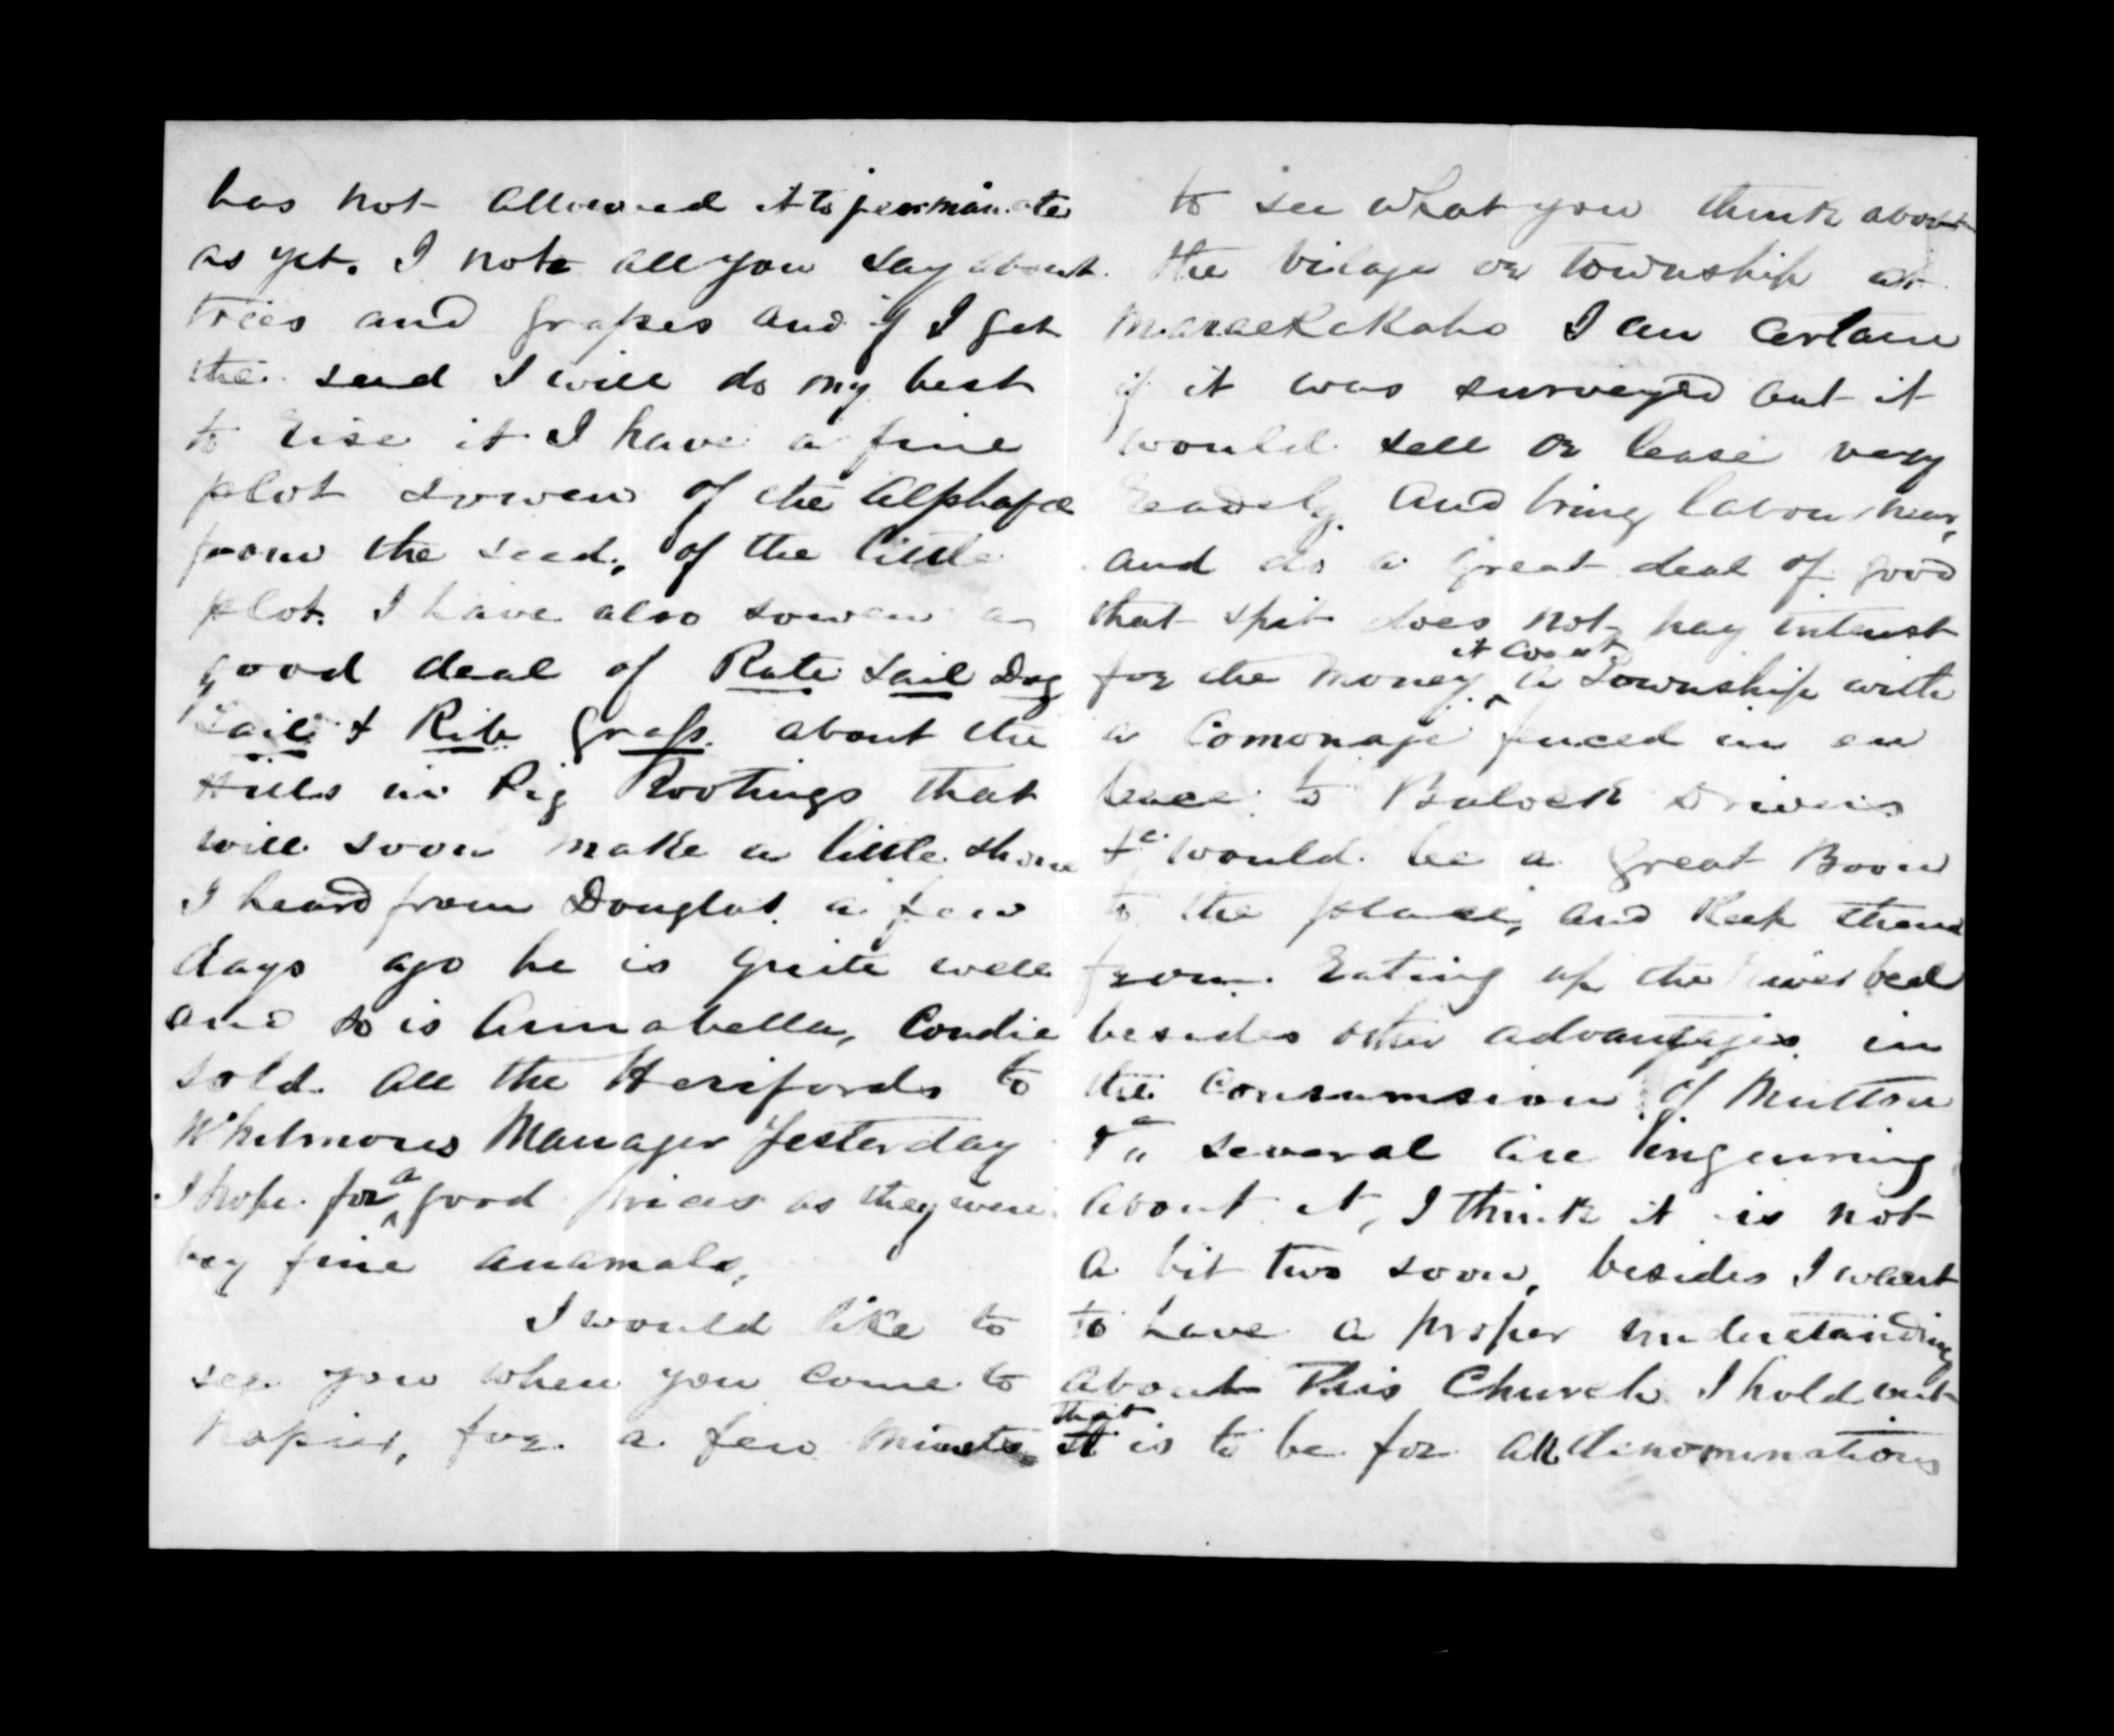 has not allowed it to jearmanate
as yet. I note all you say about
trees and grapes and if I get
the seed I will do my best
to rise it I have a fine
plot sowen of the Alphafa
from the seed, of the little
plot. I have also sowen a
good deal of Rate tail Dog
Tail & Rib grass about the
Hills in Pig Rootings that
will soon make a little show
I heard from Douglas a few
days ago he is quite well
and so is Annabella, Condie
sold all the Herifords to
Whitmores Manager Yesterday
I hope for a good prices as they were
very fine anamals,
I would like to
see you when you come to
Napier, for a few minets
to see what you think about
the vilage or township at
Maraekakaho I am certain
if it was surveyed out it
would sell or lease very
readely and bring labour near,
and do a great deal of good
that spit does not pay intrust
for the money it cost. A Township with
a Comonage fenced in on
lease to Bulock Drivers
&c would be a great Boon
to the place, and keep them
from Eating up the river bed
besides other advantages in
the Consumsion of Mutton
&c several are enquiring
about it, I think it is not
a bit two soon, besides I want
to have a proper understanding
about this Church I hold out
that it is to be for all denominations